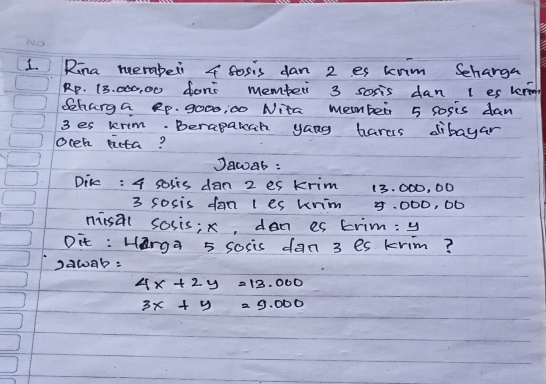 NO
1. Rina membeli 4 sosis dan 2 es krim Seharga
Rp. 13.000,00 doni membeli 3 sosis dan 1 es krim
Seharga Rp. 9000,00 Nita membeli 5 sosis dan
3 es krim. Berapakah yang harus dibayar
Oleh nita ?
Jawab :
Dik : 4 sosis dan 2 es krim 13.000,00
3 sosis dan 1 es krim 9.000,00
misal sosis ; x , dan es krim : y
Dit : Harga 5 sosis dan 3 es krim ?
Jawab :
4x + 2y = 13.000
3x + y = 9.000